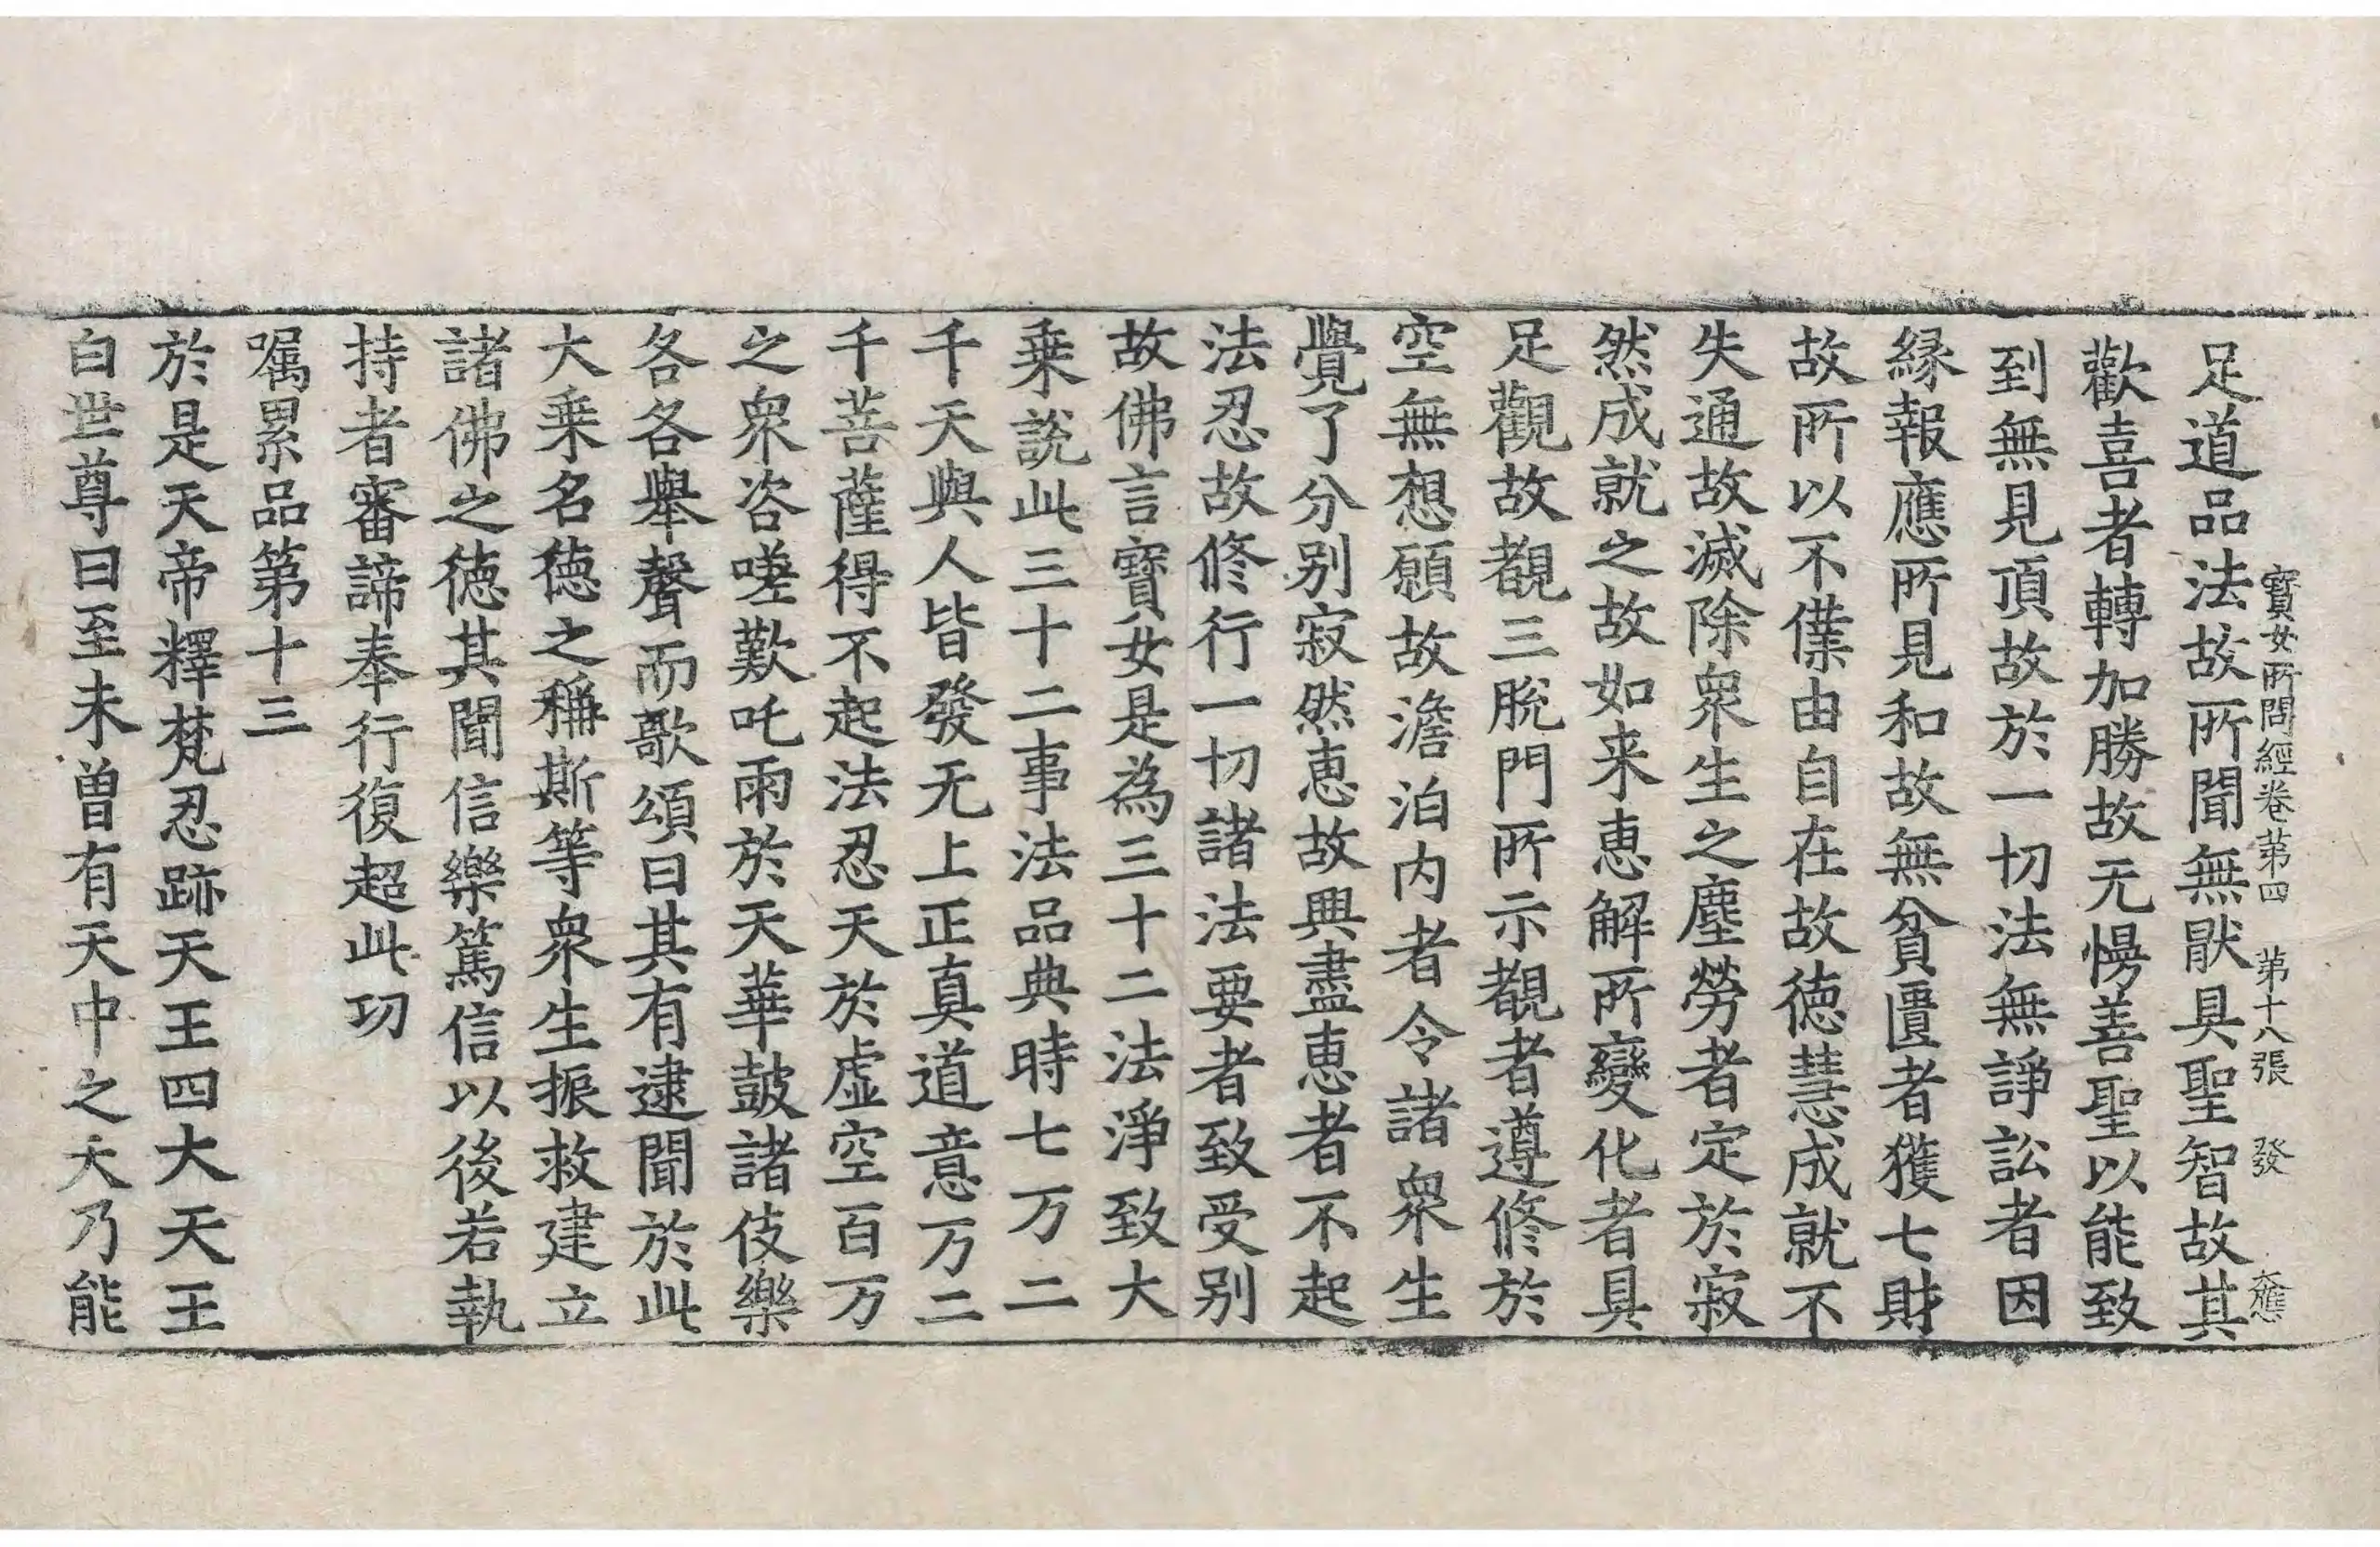 寳女所問經卷第四　第十八張　發
足道品法故所聞無猒具聖智故其
歡喜者轉加勝故无慢善聖以能致
到無見頂故於一切法無諍訟者因
縁報應所見和故無貧匱者獲七財
故所以不僕由自在故徳慧成就不
失通故滅除衆生之塵勞者定於寂
然成就之故如来恵解所變化者具
足觀故覩三脫門所示覩者遵修於
空無想願故澹泊内者令諸衆生
覺了分别寂然恵故興盡恵者不起
法忍故修行一切諸法要者致受别
故佛言寳女是為三十二法淨致大
乗説此三十二事法品典時七万二
千天與人皆發无上正真道意万二
千菩薩得不起法忍天於虚空百万
之衆咨嗟歎吒雨於天華鼓諸伎樂
各各舉聲而歌頌曰其有逮聞於此
大乗名徳之稱斯等衆生振救建立
諸佛之徳其聞信樂篤信以後若執
持者審諦奉行復超此功
嘱累品第十三
於是天帝釋梵忍跡天王四大天王
白世尊曰至未曽有天中之天乃能